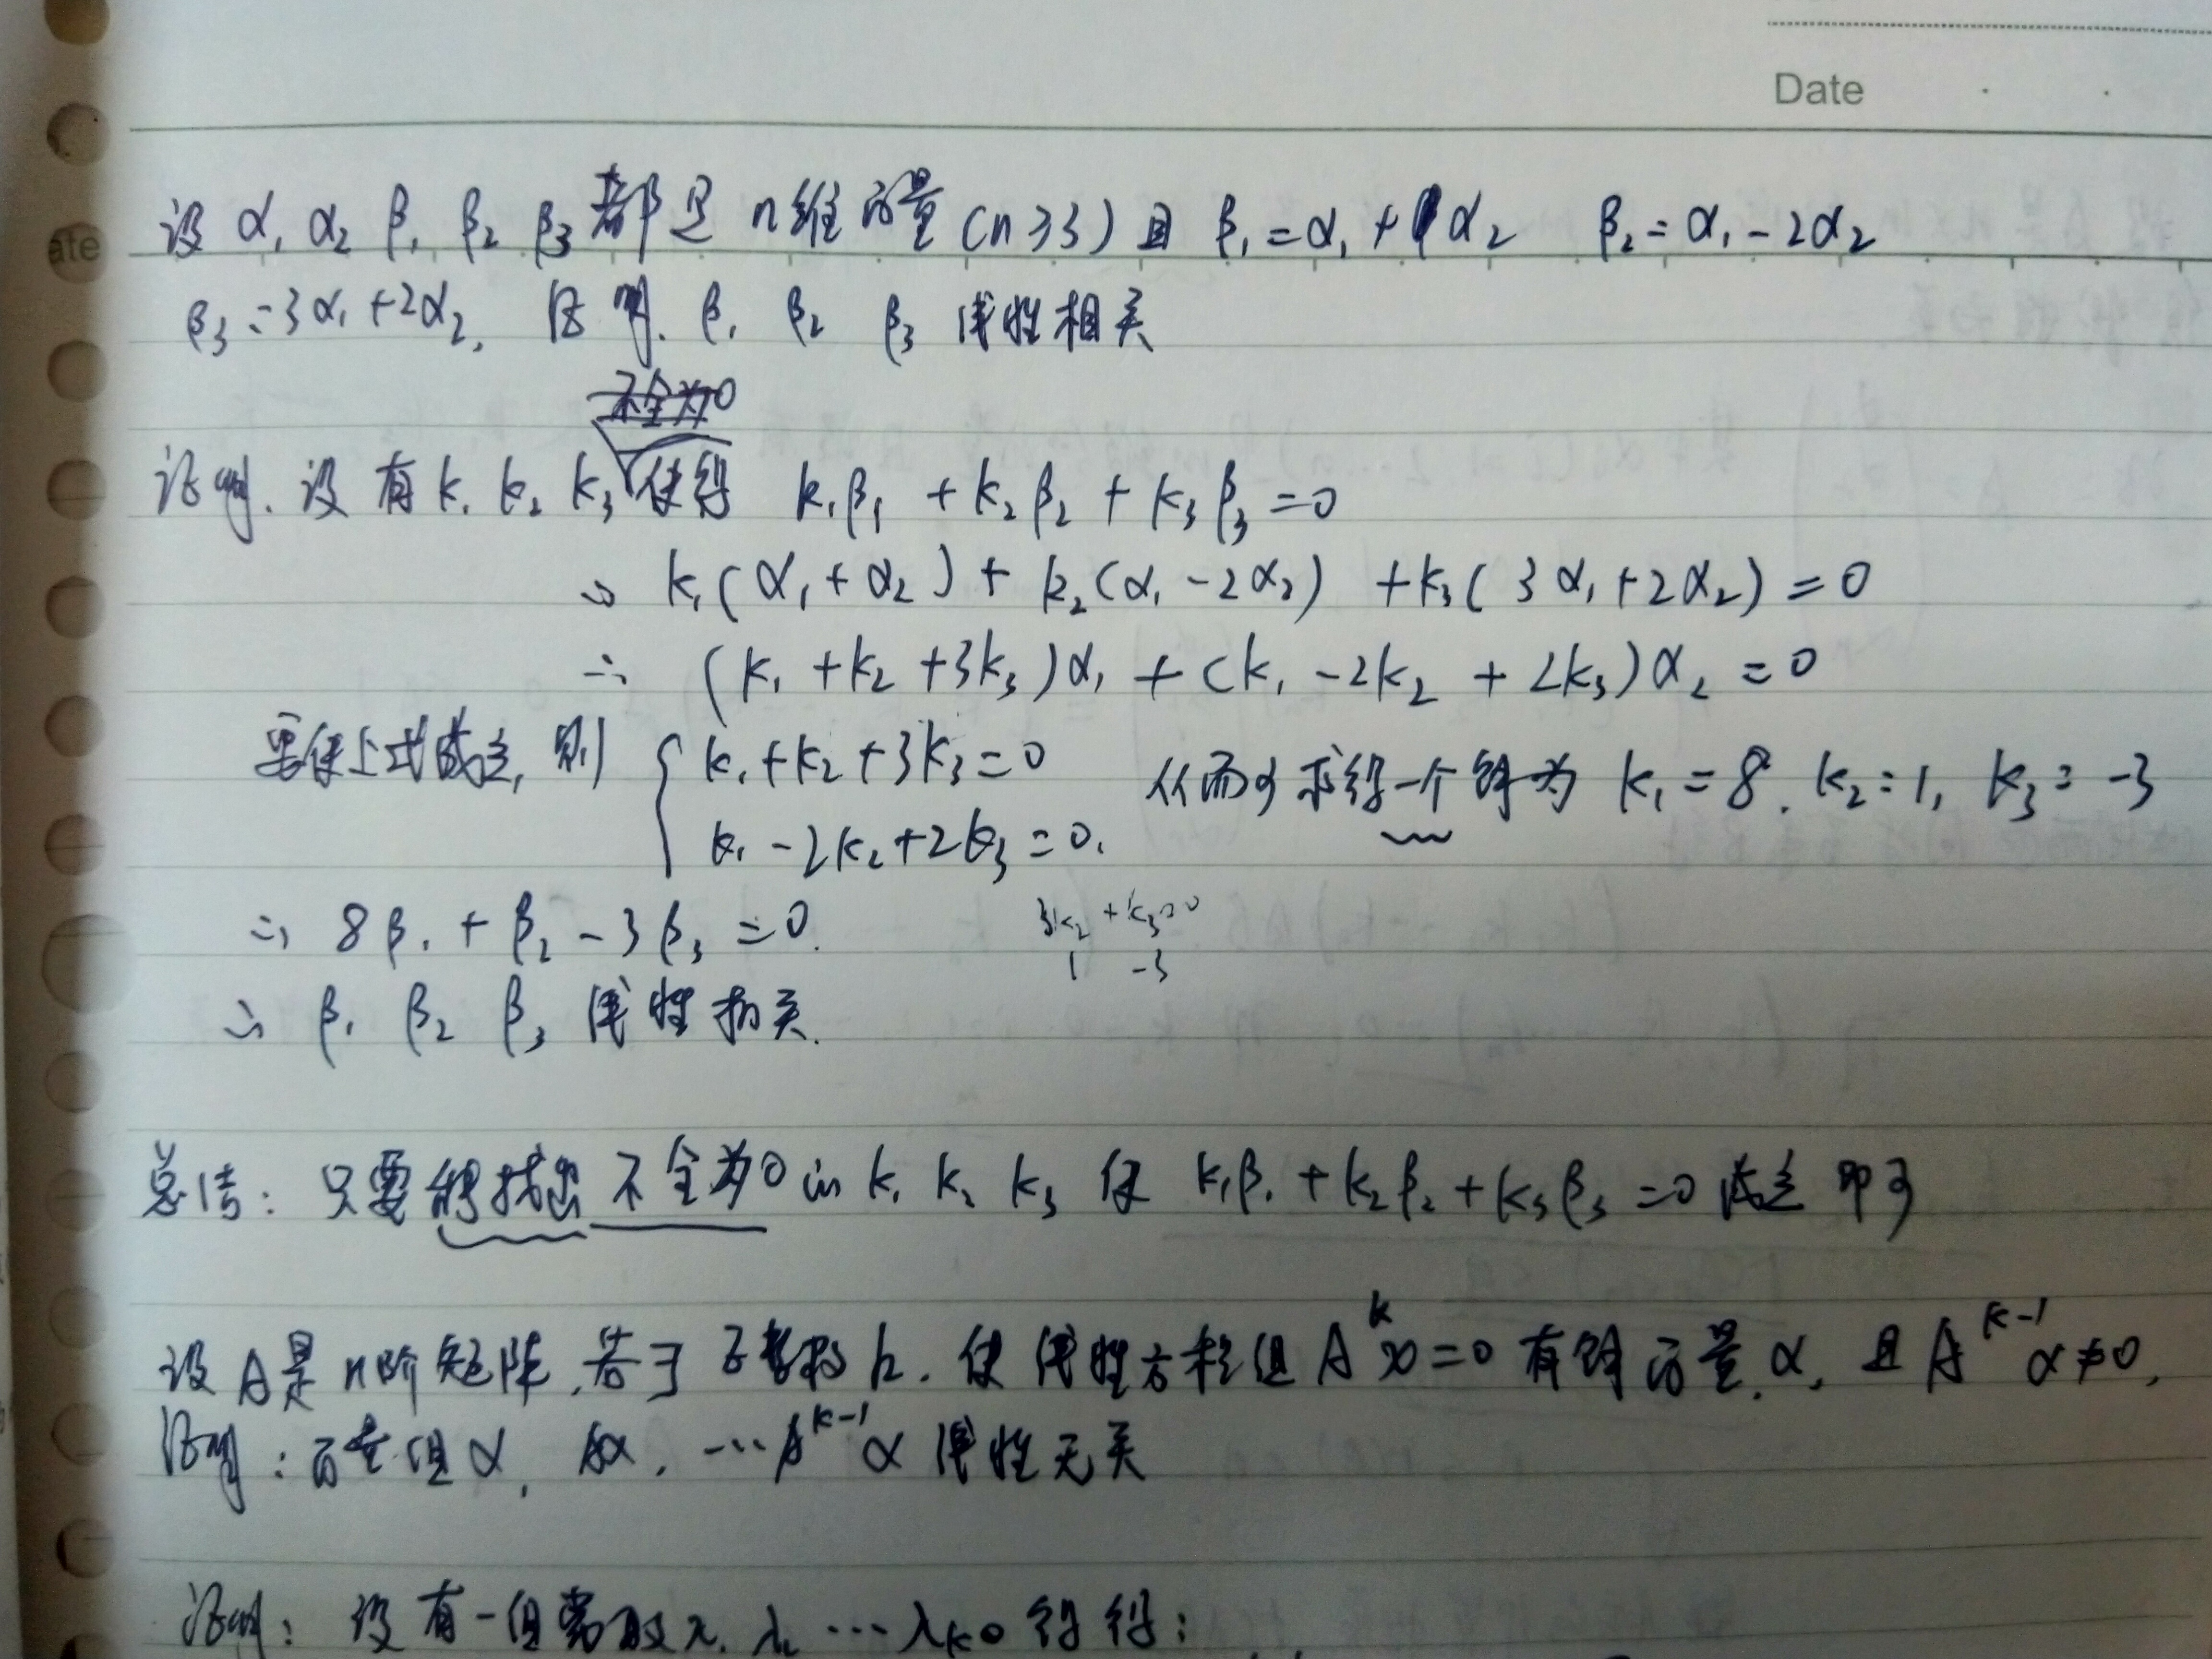 Date
设 α₁ α₂ β₁ β₂ β₃ 都是 n维向量 (n≥3) 且 β₁=α₁+α₂ β₂=α₁-2α₂
β₃=3α₁+2α₂, 证明. β₁ β₂ β₃ 线性相关
不全为0
证明. 设有 k₁ k₂ k₃ 使得 k₁β₁+k₂β₂+k₃β₃=0
∴ k₁(α₁+α₂)+k₂(α₁-2α₂)+k₃(3α₁+2α₂)=0
∴ (k₁+k₂+3k₃)α₁+(k₁-2k₂+2k₃)α₂=0
要使上式成立, 则 { k₁+k₂+3k₃=0
k₁-2k₂+2k₃=0. 从而求得一个解为 k₁=8. k₂=1, k₃=-3
3k₂+k₃=0
1 -3
∴ 8β₁+β₂-3β₃=0.
∴ β₁ β₂ β₃ 线性相关.
总结: 只需能找到不全为0的 k₁ k₂ k₃ 使 k₁β₁+k₂β₂+k₃β₃=0成立即可
设A是n阶矩阵, 若∃正整数k. 使线性方程组Aᵏx=0有解向量α, 且Aᵏ⁻¹α≠0,
证明: 向量组α, Aα, … Aᵏ⁻¹α线性无关
证明: 设有一组常数λ₁ λ₂ … λₖ。 使得: